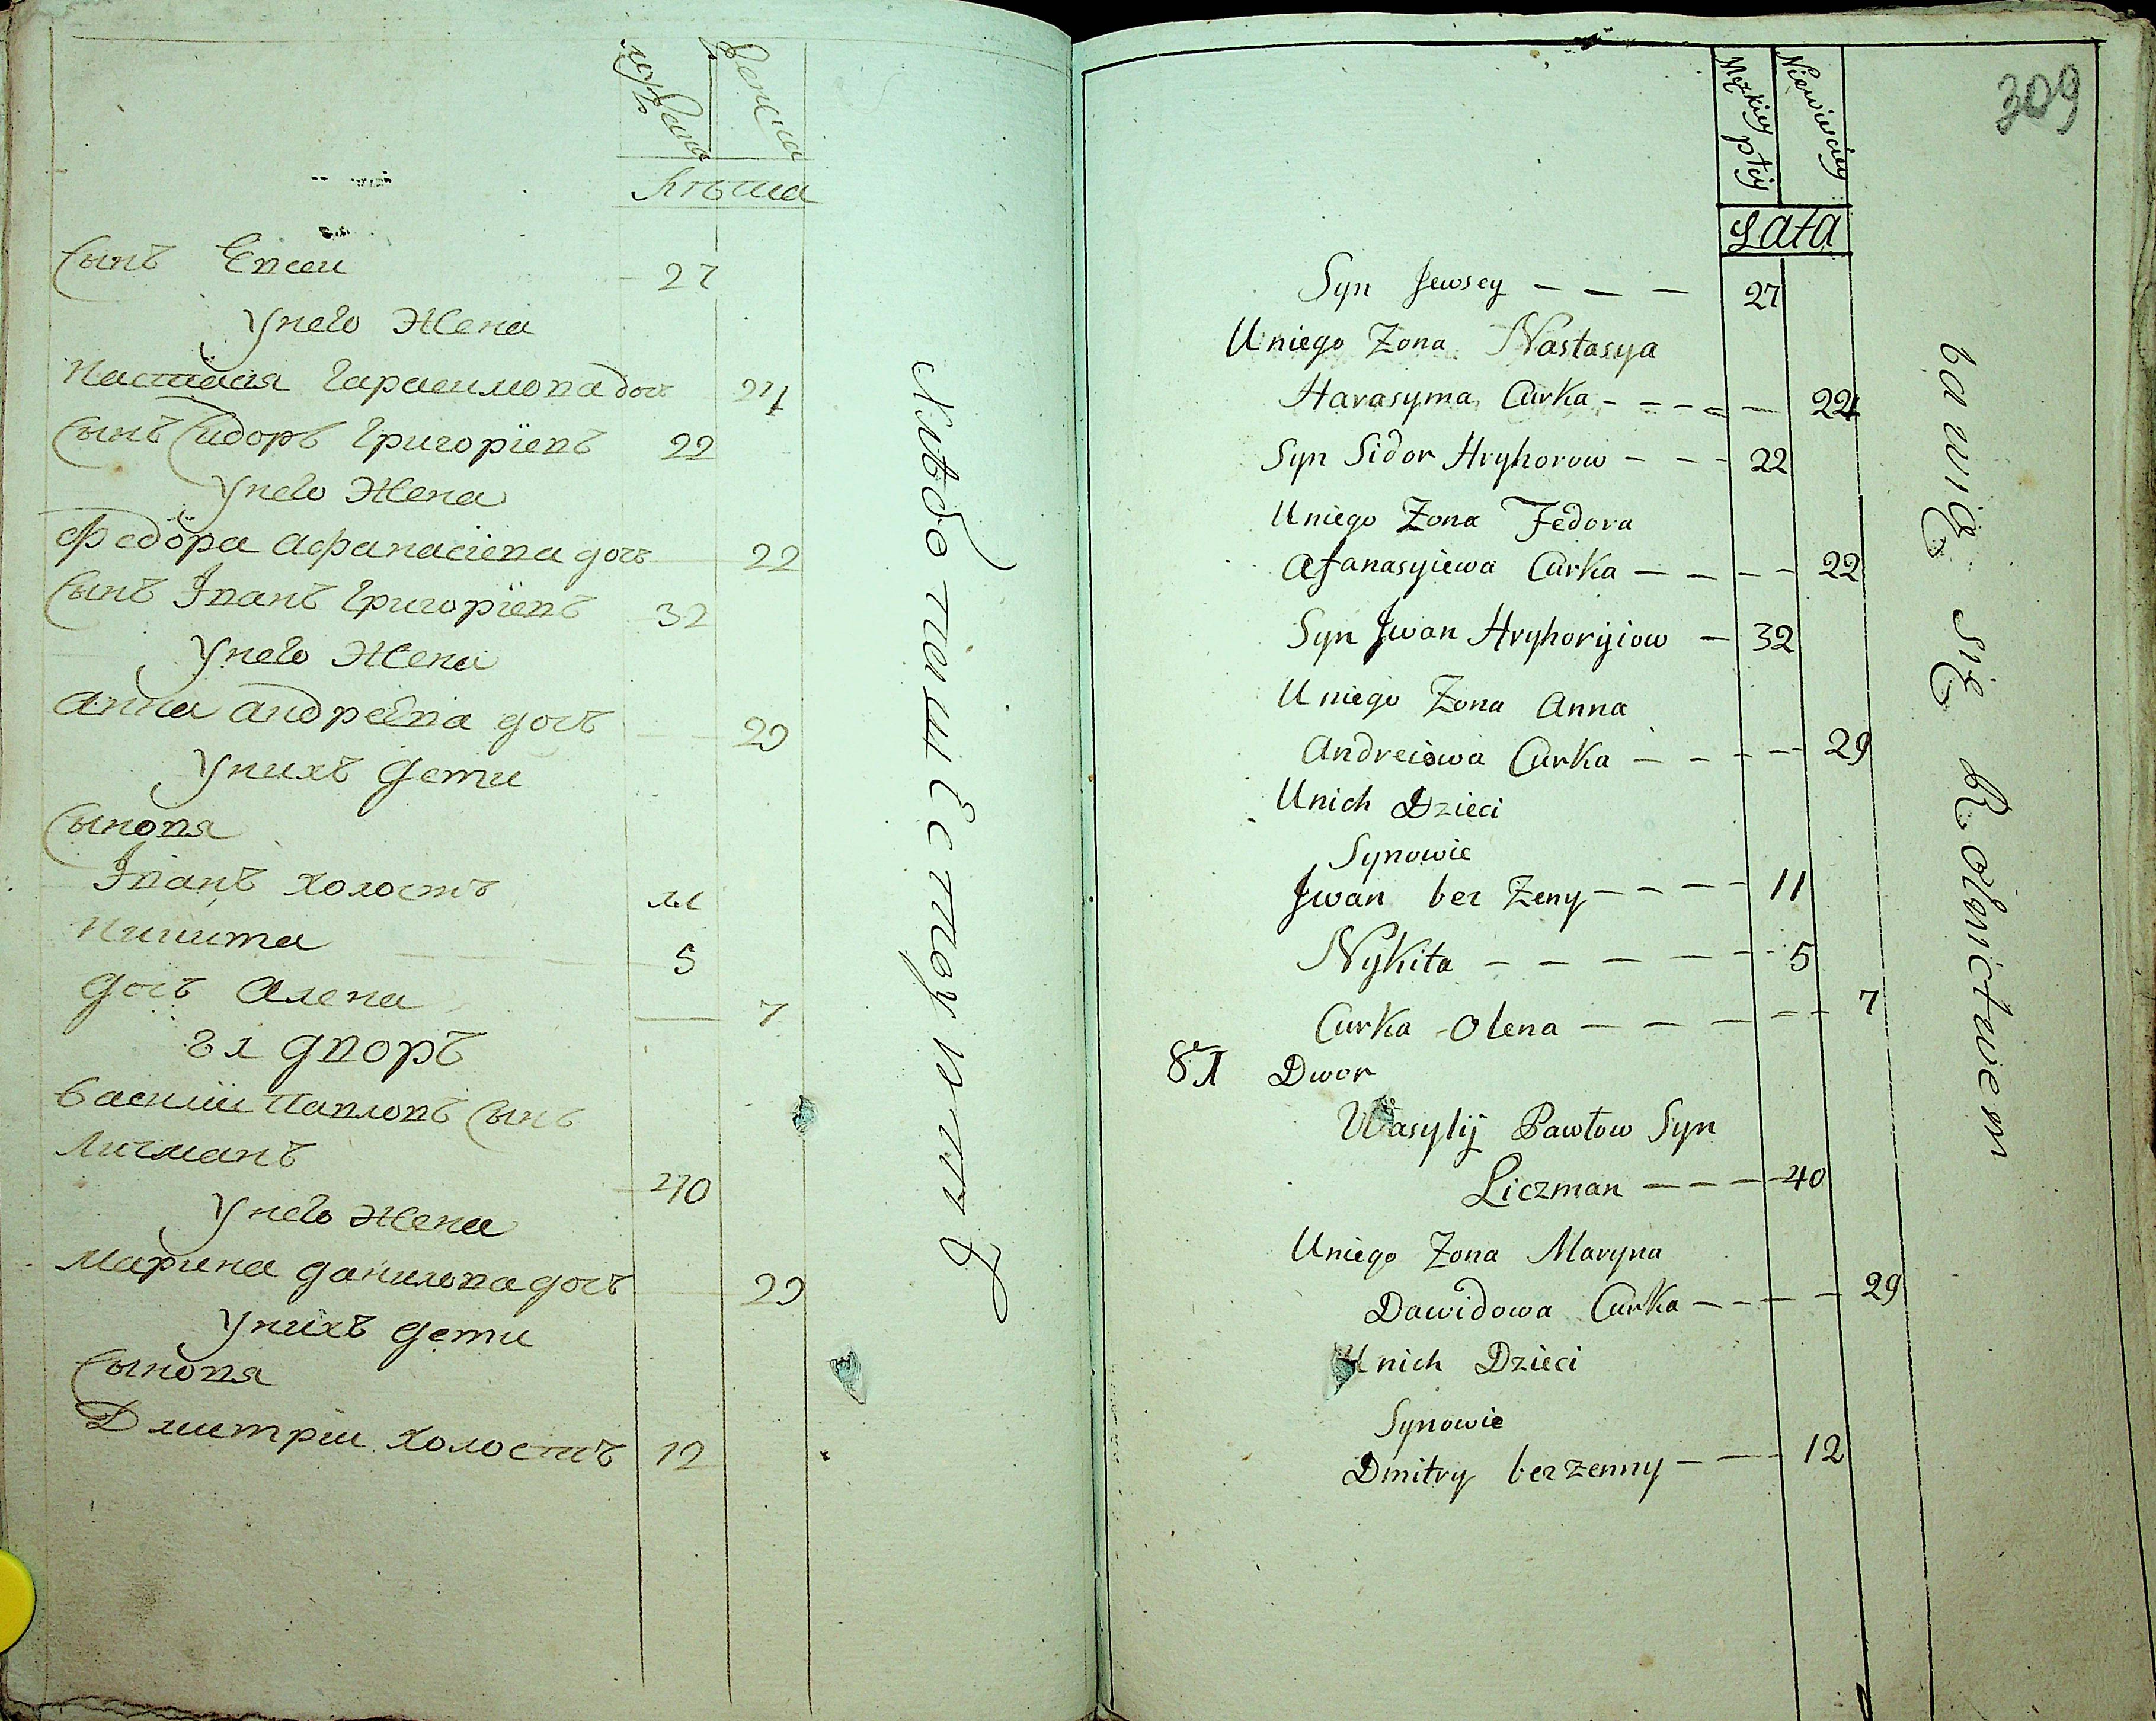 мужеска
женска
лѣта
Сынъ Евсеи 27
У него Жена
Настасия Гарасимова дочь 24
Сынъ Сидоръ Григориевъ 22
У него Жена
Федора Афанасиева дочь 22
Сынъ Іванъ Григориевъ 32
У него Жена
Анна Андреева дочь 29
У нихъ Дети
Сыновя
Іванъ холостъ 11
Никита 5
Дочь Алена 7
81 Дворъ
Василии Павловъ Сынъ
Личманъ 40
У него Жена
Марина Данилова дочь 29
У нихъ Дети
Сыновя
Дмитрии холостъ 12
Хлѣбопашествуютъ
309
Męzkiey płcij
Niewieściey
Lata
Syn Jewsey - - - 27
U niego Zona Nastasya
Harasyma Curka - - - - - 24
Syn Sidor Hryhorow - - - 22
U niego Zona Fedora
Afanasyiewa Curka - - - - 22
Syn Jwan Hryhoryiow - 32
U niego Zona Anna
Andreiowa Curka - - - - 29
U nich Dzieci
Synowie
Jwan bez Zeny - - - - 11
Nykita - - - - - - 5
Curka Olena - - - - - 7
81 Dwor
Wasylij Pawłow Syn
Liczman - - - - 40
U niego Zona Maryna
Dawidowa Curka - - - - 29
U nich Dzieci
Synowie
Dmitry bezzenny - - - 12
bawią się Rolnictwem